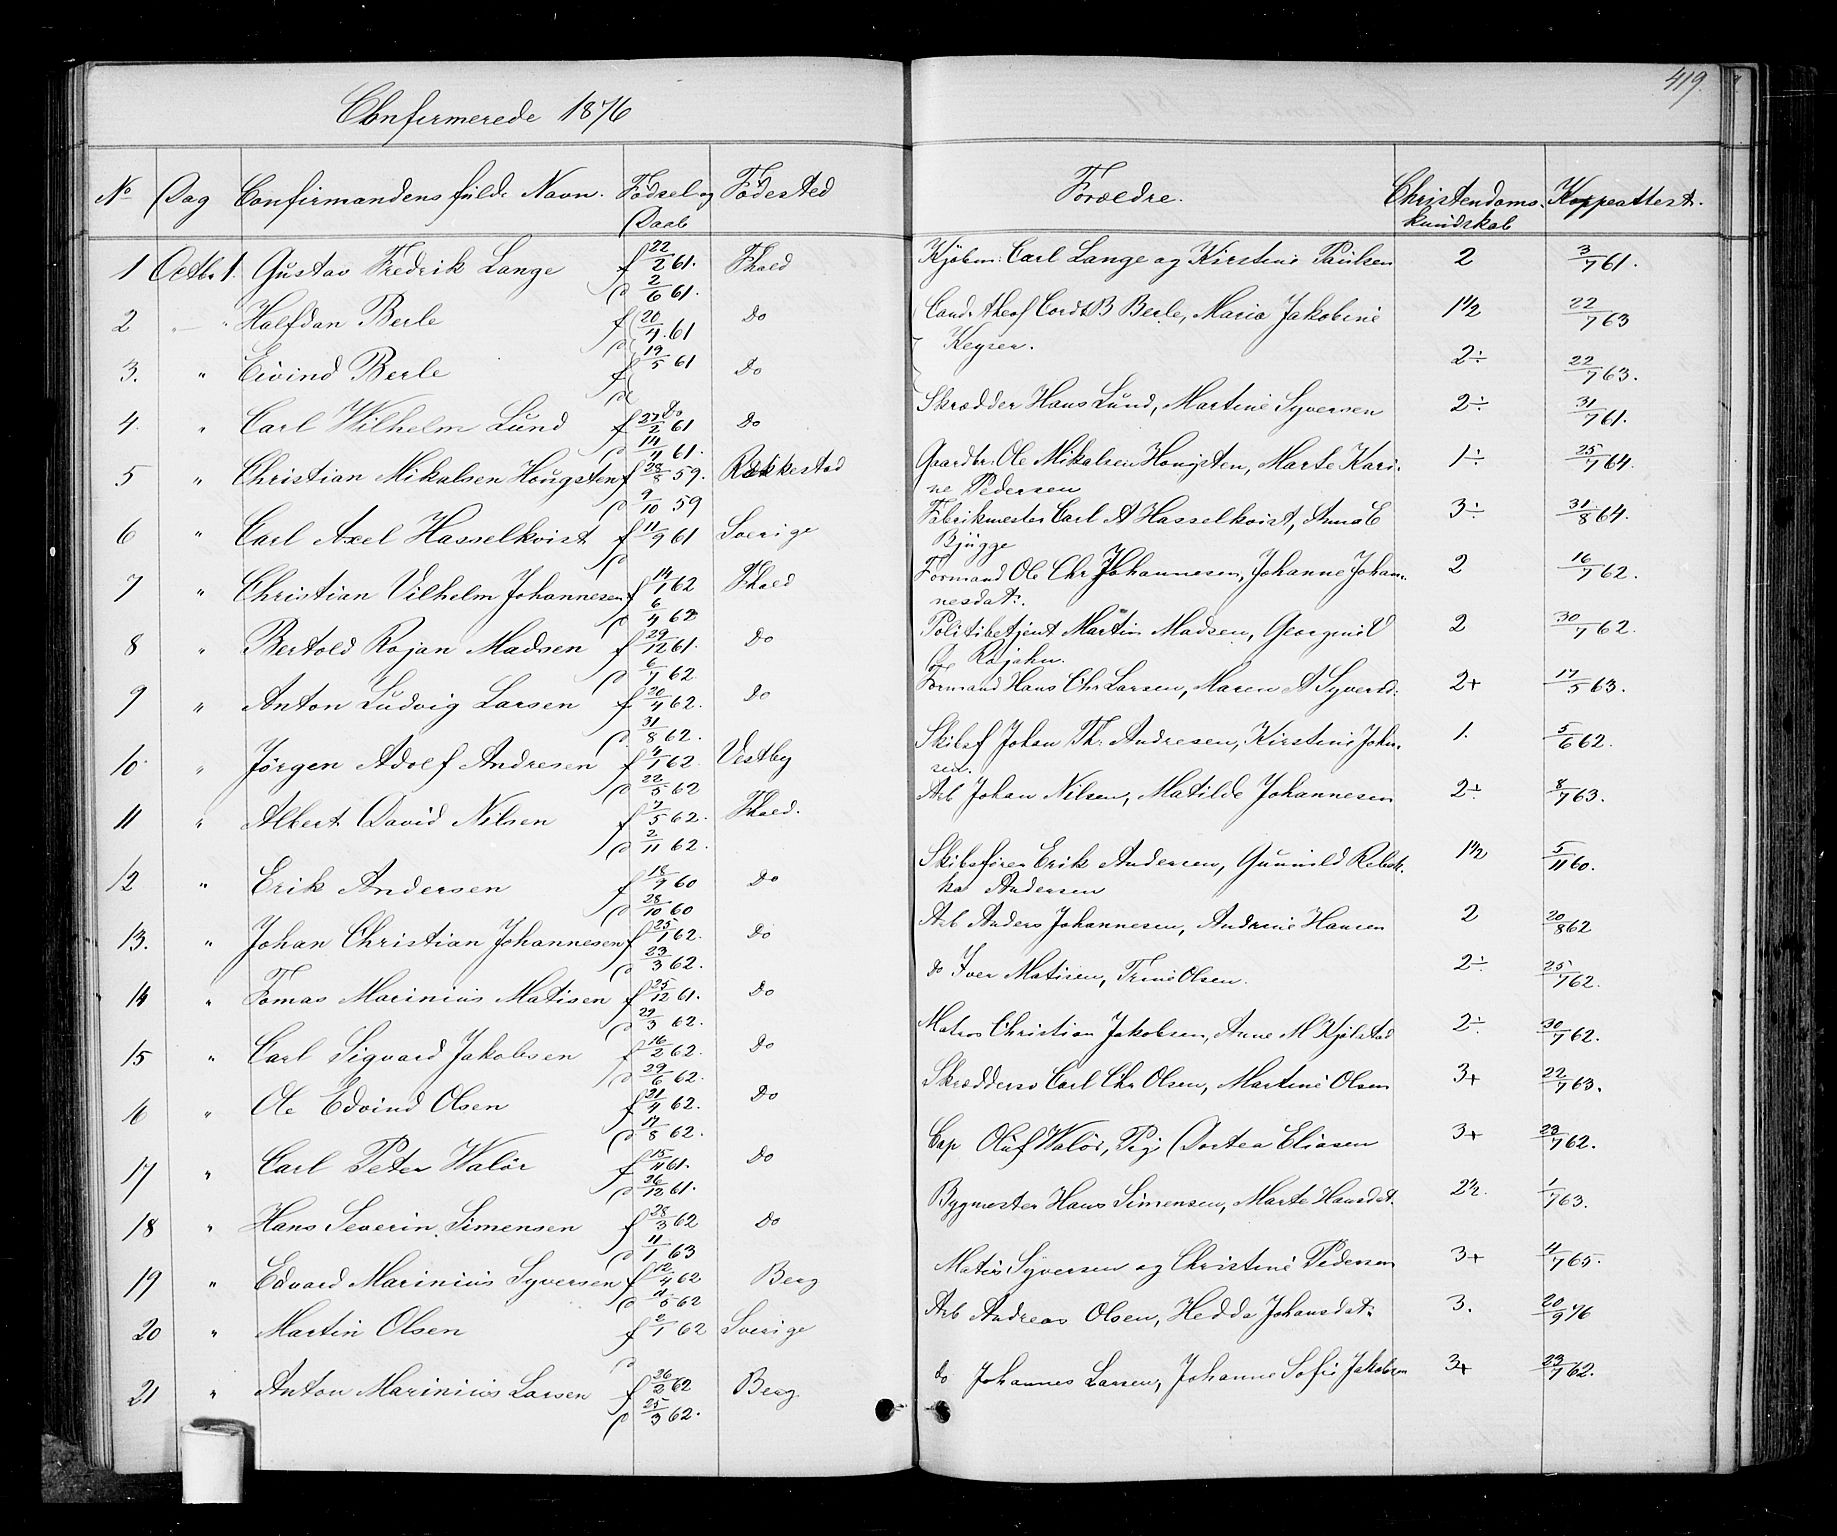 419.
Confirmerede 1876
No Dag Confirmandens fulde Navn. Fødsel og Daab Fødested Forældre. Christendoms- kundskab Koppeattest.
1 Octbr 1. Gustav Fredrik Lange f 22/2 61. Fhald Kjøbm: Carl Lange og Kirstine Paulsen 2 3/7 61.
d 2/6 61.
2 " Halfdan Berle f 20/4 61 Do Cand. theol Cordt B Berle, Maria Jakobine 1 1/2 22/7 63
Keyser.
3. " Eivind Berle f 19/5 61 Do 2÷ 22/7 63.
d Do
4. " Carl Wilhelm Lund f 27/2 61 Do Skrædder Hans Lund, Martine Syversen 2÷ 31/7 61.
d 14/4 61.
5 " Christian Mikalsen Hougsten f 28/8 59. Rakkestad Gaardbr: Ole Mikalsen Hougsten, Marte Kari- 1÷ 25/7 64.
d 9/10 59 ne Pedersen
6 " Carl Axel Hasselkvist f 11/9 61 Sverige Fabrikmester Carl A Hasselkvist, Anna E 3÷ 31/8 64.
d Bjugge
7 " Christian Vilhelm Johannesen f 14/1 62 Fhald Formand Ole Chr Johannesen, Johanne Johan- 2 16/7 62.
d 6/4 62 nesdatr.
8 " Bertold Rojan Madsen f 29/12 61. Do Politibetjent Martin Madsen, Georgine V 2 30/7 62.
d 6/7 62. Rojahn.
9 " Anton Ludvig Larsen f 20/4 62. Do Formand Hans Chr Larsen, Maren A Syversd. 2+ 17/5 63.
d 31/8 62.
10. " Jørgen Adolf Andresen f 4/1 62. Vestby Skibsf Johan Th: Andresen, Kirstine Johan- 1. 5/6 62.
d 22/5 62 sen.
11 " Albert David Nilsen f 7/5 62. Fhald. Arb Johan Nilsen, Matilde Johannesen 2÷ 8/7 63.
d 2/11 62.
12 " Erik Andersen f 18/9 60 Do Skibsfører Erik Andersen, Gunnild Rebek- 1 1/2 5/11 60.
d 28/10 60 ka Andersen
13. " Johan Christian Johannesen f 25/1 62. Do Arb Anders Johannesen, Andrine Hansen 2 20/8 62
d 23/3 62.
14 " Tomas Marinius Matisen f 25/12 61. Do do Iver Matisen, Trine Olsen. 2÷ 25/7 62.
d 29/3 62.
15 " Carl Sigvard Jakobsen f 16/2 62. Do Matros Christian Jakobsen, Anne M Kjølstad 2÷ 30/7 62.
d 29/6 62.
16 " Ole Edvind Olsen f 21/4 62. Do Skræddersv Carl Chr Olsen, Martine Olsen 3+ 22/7 63.
d 17/8 62.
17 " Carl Peter Walør f 15/11 61. Do Cap Oluf Walør, Pig. Dortea Eliasen 3+ 23/7 62.
d 26/12 61.
18 " Hans Severin Simensen f 28/3 62 Do Bygmester Hans Simensen, Marte Hansdat. 2 1/2. 1/7 63.
d 11/1 63
19 " Edvard Marinius Syversen f 12/4 62 Berg Matis Syversen og Christine Pedersen 3+ 11/7 65.
d 11/5 62
20 " Martin Olsen f 2/1 62 Sverige Arb Andreas Olsen, Hedda Johansdat. 3. 20/9 76
d
21 " Anton Marinius Larsen f 26/2 62 Berg do Johannes Larsen, Johanne Sofie Jakobsen 3+ 23/7 62.
d 25/3 62.